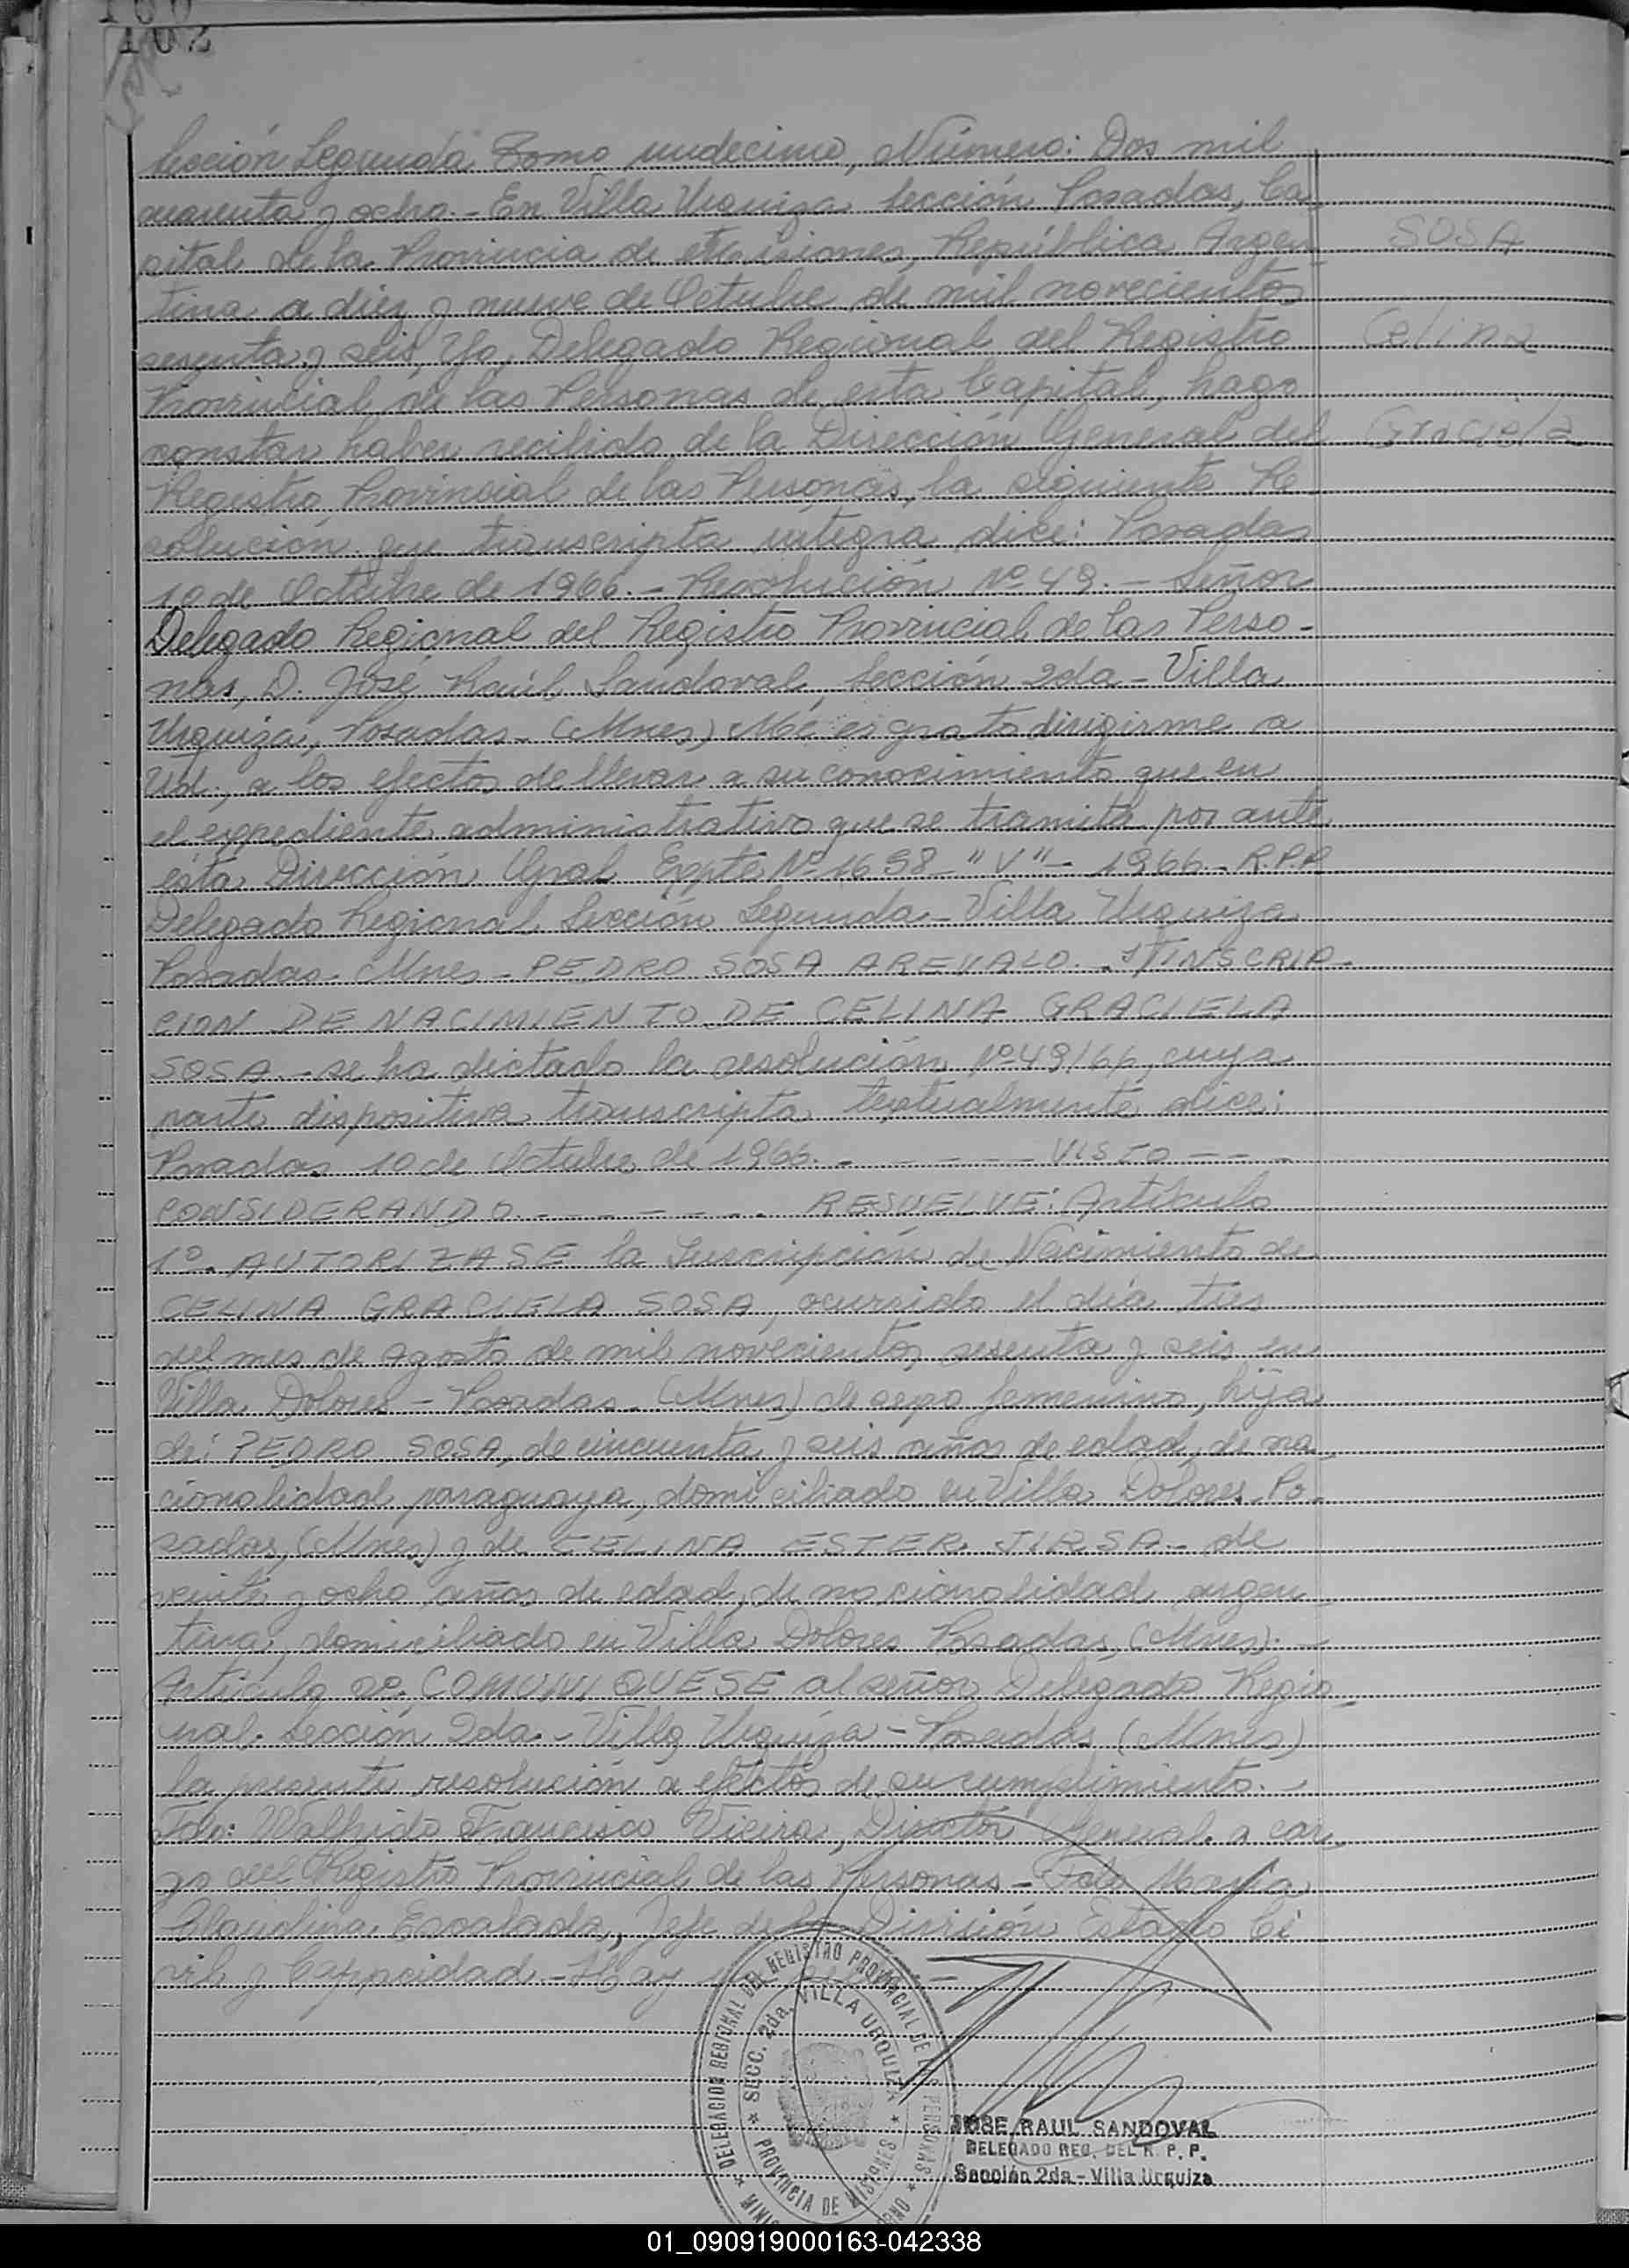 100
102
Sección Segunda Tomo undecimo, Número: Dos mil
cuarenta y ocho.- En Villa Urquiza Sección Posadas, Ca-
pital de la Provincia de Misiones, República Argen-
SOSA
tina a diez y nueve de Octubre de mil novecientos
sesenta y seis, Yo, Delegado Regional del Registro
Celina
Provincial de las Personas de esta Capital, hago
constar haber recibido de la Dirección General del
Graciela
Registro Provincial de las Personas, la siguiente Re
solución que transcripta integra dice: Posadas
10 de Octubre de 1966.- Resolución Nº 49.- Señor
Delegado Regional del Registro Provincial de las Perso-
nas, D. José Raúl Sandoval, Sección 2da - Villa
Urquiza, Posadas- (Mnes) Me es grato dirigirme a
Ud., a los efectos de llevar a su conocimiento que en
el expediente administrativo que se tramita por ante
esta Dirección Gral Expte Nº 1698 "V"- 1966- R.P.P
Delegado Regional Sección Segunda- Villa Urquiza
Posadas- Mnes- PEDRO SOSA AREVALO.- S/INSCRIP-
CION DE NACIMIENTO DE CELINA GRACIELA
SOSA - se ha dictado la resolución Nº49/66, cuya
parte dispositiva transcripta textualmente dice:
Posadas 10 de Octubre de 1966.- - - - - - VISTO - - -
CONSIDERANDO - - - - - - - RESUELVE: Artículo
1º. AUTORIZASE la Inscripción de Nacimiento de
CELINA GRACIELA SOSA, ocurrido el día tres
del mes de Agosto de mil novecientos sesenta y seis en
Villa Dolores - Posadas- (Mnes) de sexo femenino, hija
de: PEDRO SOSA, de cincuenta y seis años de edad, de na-
cionalidad paraguaya, domiciliado en Villa Dolores- Po-
sadas, (Mnes) y de CELINA ESTER JIRSA- de
veinte y ocho años de edad, de nacionalidad argen-
tina, domiciliado en Villa Dolores Posadas, (Mnes).-
Artículo 2º. COMUNIQUESE al señor Delegado Regio-
nal- Sección 2da - Villa Urquiza - Posadas (Mnes)
la presente resolución a efectos de su cumplimiento.-
Fdo: Walfrido Francisco Vieira, Director General a car-
go del Registro Provincial de las Personas- Fdo María
Claudina Escalada, Jefe de la División Estado Ci
vil y Capacidad- Hay un
DELEGACION REGIONAL DEL REGISTRO PROVINCIAL DE LAS PERSONAS
SECC. 2da. VILLA URQUIZA
PROVINCIA DE MISIONES
JOSE RAUL SANDOVAL
DELEGADO REG. DEL R. P. P.
Sección 2da - Villa Urquiza
01_090919000163-042338